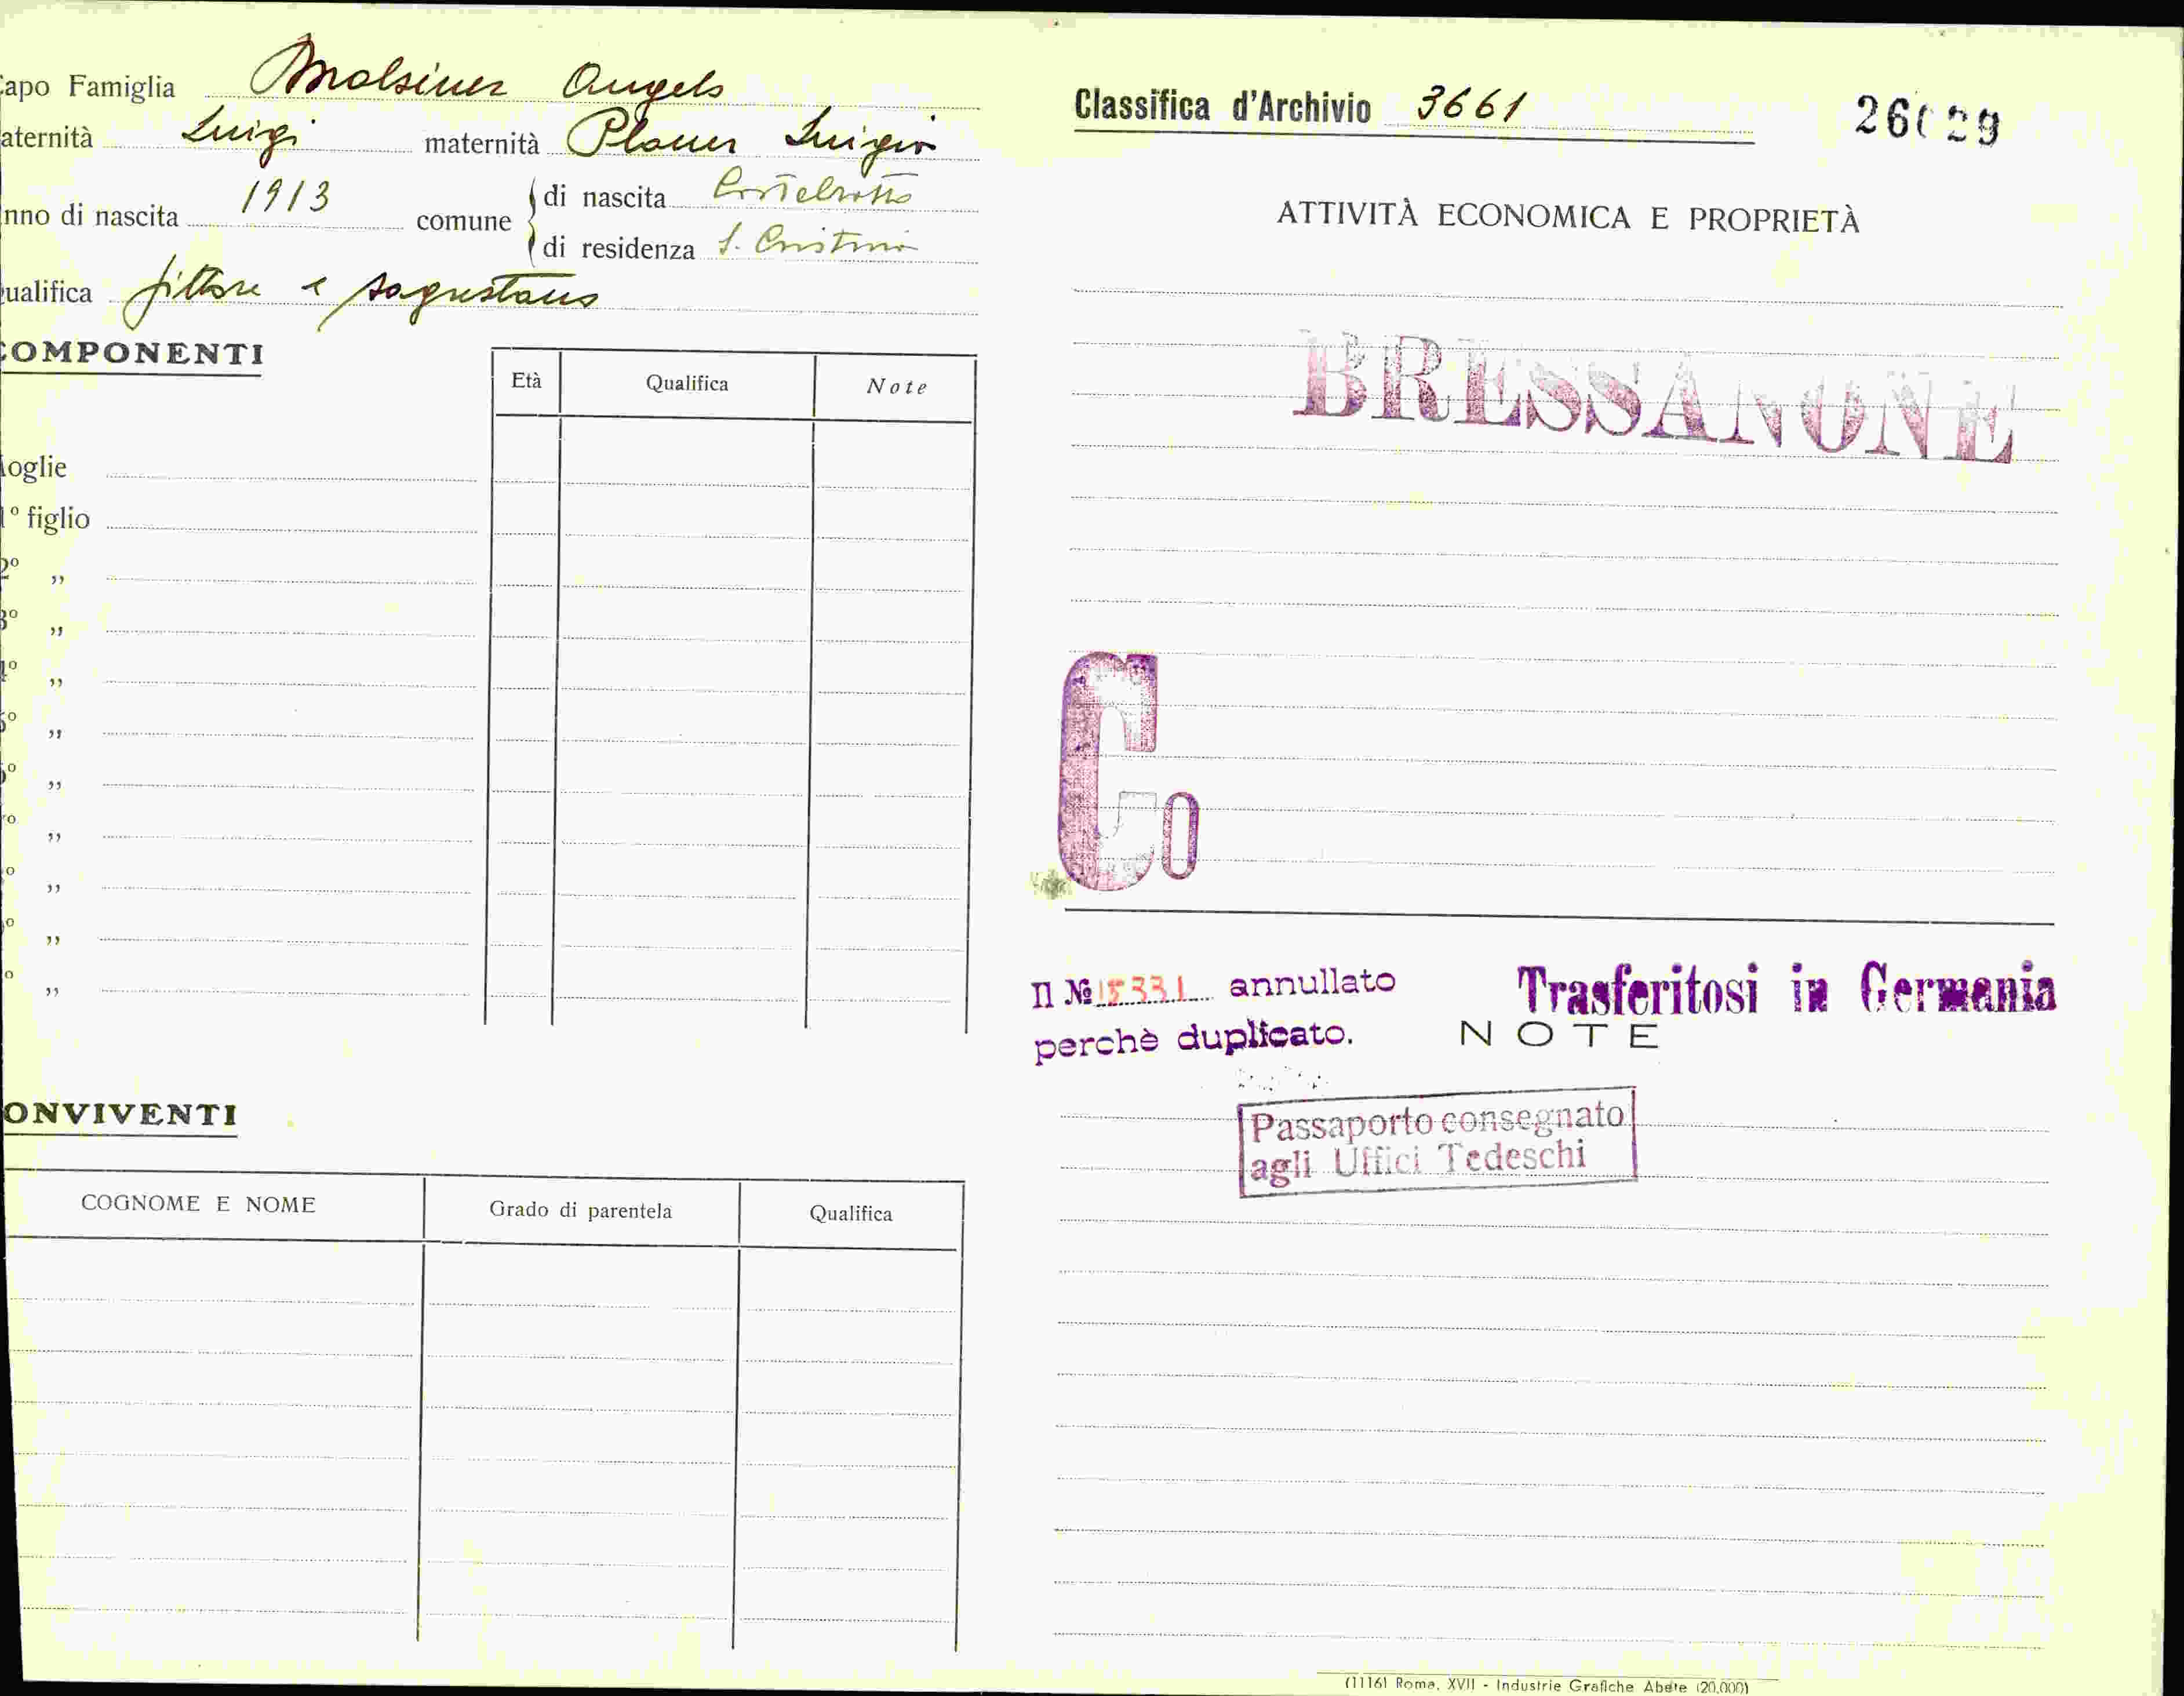 Capo Famiglia Malsiner Angelo
aternità Luigi maternità Planer Luigia
nno di nascita 1913 comune di nascita Castelrotto
di residenza S. Cristina
ualifica pittore e sagrestano
COMPONENTI
Età Qualifica Note
oglie
1º figlio
2º ,,
3º ,,
4º ,,
5º ,,
6º ,,
º ,,
º ,,
º ,,
º ,,
ONVIVENTI
COGNOME E NOME Grado di parentela Qualifica
Classifica d'Archivio 3661
ATTIVITÀ ECONOMICA E PROPRIETÀ
BRESSANONE
Co
Il № 15331 annullato
perchè duplicato.
Trasferitosi in Germania
NOTE
Passaporto consegnato
agli Uffici Tedeschi
(1116) Roma, XVII - Industrie Grafiche Abete (20.000)